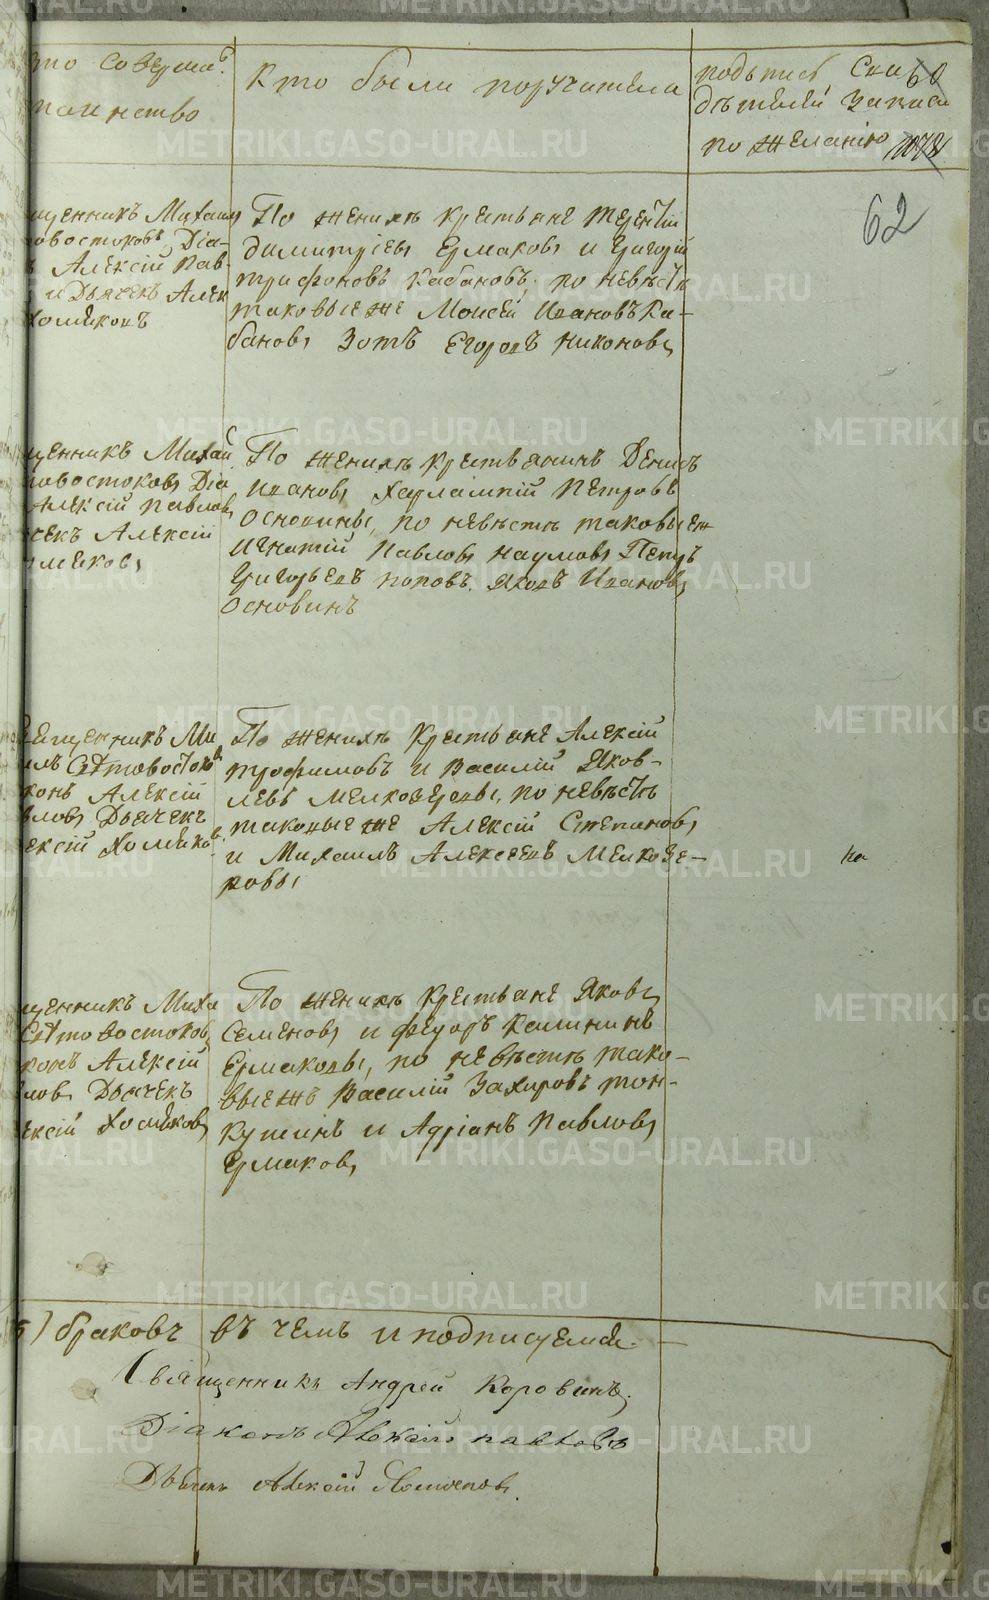 то Соверша
таинство
Кто были поручатели
подпись Сви
дѣтелей Записи
по желанію
62
щенникъ Михаил
овостоковъ, Діа-
Алексій Пав-
и Дьячекъ Алек
Хомяковъ
По женихѣ крестьяне Терентій
Димитріевъ Ермаковъ и Григорій
Трифоновъ Кабановъ, по невѣстѣ
таковые же Моисей Ивановъ Ка-
бановъ Зотъ Егоровъ Никоновъ
щенникъ Михаи
товостоковъ Діа
Алексій Павловъ
чекъ Алексій
омяковъ
По женихѣ крестьянинъ Денисъ
Ивановъ, Харлампій Петровъ
Основины, по невѣстѣ таковыеж
Игнатій Павловъ Наумовъ Петръ
Григорьевъ Поповъ. Яковъ Ивановъ
Основинъ
Священникъ Ми
илъ Свѣтовостоковъ
конъ Алексій
вловъ Дьячекъ
ексій Хомяковъ
По женихѣ Крестьяне Алексій
Трофимовъ и Василій Яков-
левъ Мелкозеровы, по невѣстѣ
таковые же Алексій Степановъ
и Михаилъ Алексеевъ Мелкозе-
ровы
на
щенникъ Миха
Свѣтовостоковъ
конъ Алексій
ловъ Дьячекъ
ексій Хомяковъ
По женихѣ Крестьяне Яковъ
Семеновъ и Федоръ Калининъ
Ермаковы, по невѣстѣ тако-
выежъ Василій Захаровъ Тон-
кушинъ и Адріанъ Павловъ
Ермаковъ
5) браковъ въ чемъ и подписуемся.
Священникъ Андрей Коровинъ.
Діаконъ Алексій Павловъ
Дьячекъ Алексій Хомяковъ
METRIKI.GASO-URAL.RU